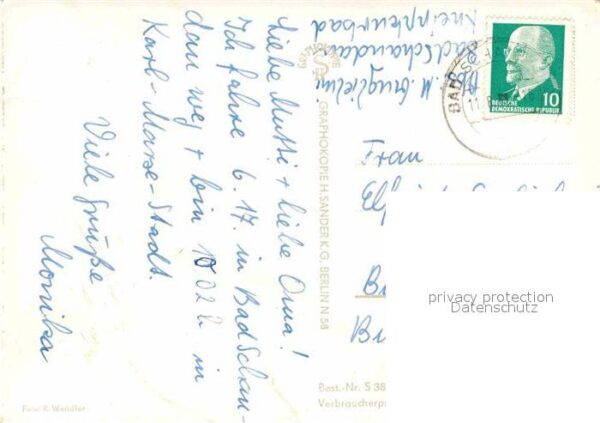 Liebe Mutti + liebe Oma!
Ich fahre 6.17. in Bad Schan-
dau weg + bin 10 02 in
Karl-Marx-Stadt.
Viele Grüße
Monika
Bad Schandau
Kneippkurbad
GRAPHOKOPIE H. SANDER K.G. BERLIN N 58
BAD SC
DEUTSCHE
DEMOKRATISCHE REPUBLIK
10
Frau
Br
privacy protection
Datenschutz
Best.-Nr. S 38
Verbraucherp
Foto: R. Wendler